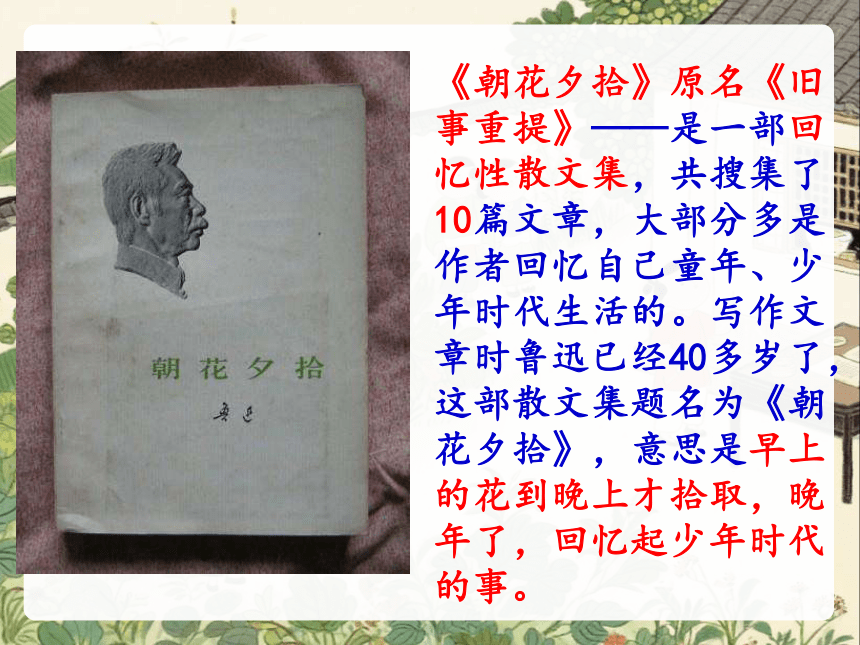 朝花夕拾
鲁迅
《朝花夕拾》原名《旧
事重提》——是一部回
忆性散文集，共搜集了
10篇文章，大部分多是
作者回忆自己童年、少
年时代生活的。写作文
章时鲁迅已经40多岁了，
这部散文集题名为《朝
花夕拾》，意思是早上
的花到晚上才拾取，晚
年了，回忆起少年时代
的事。